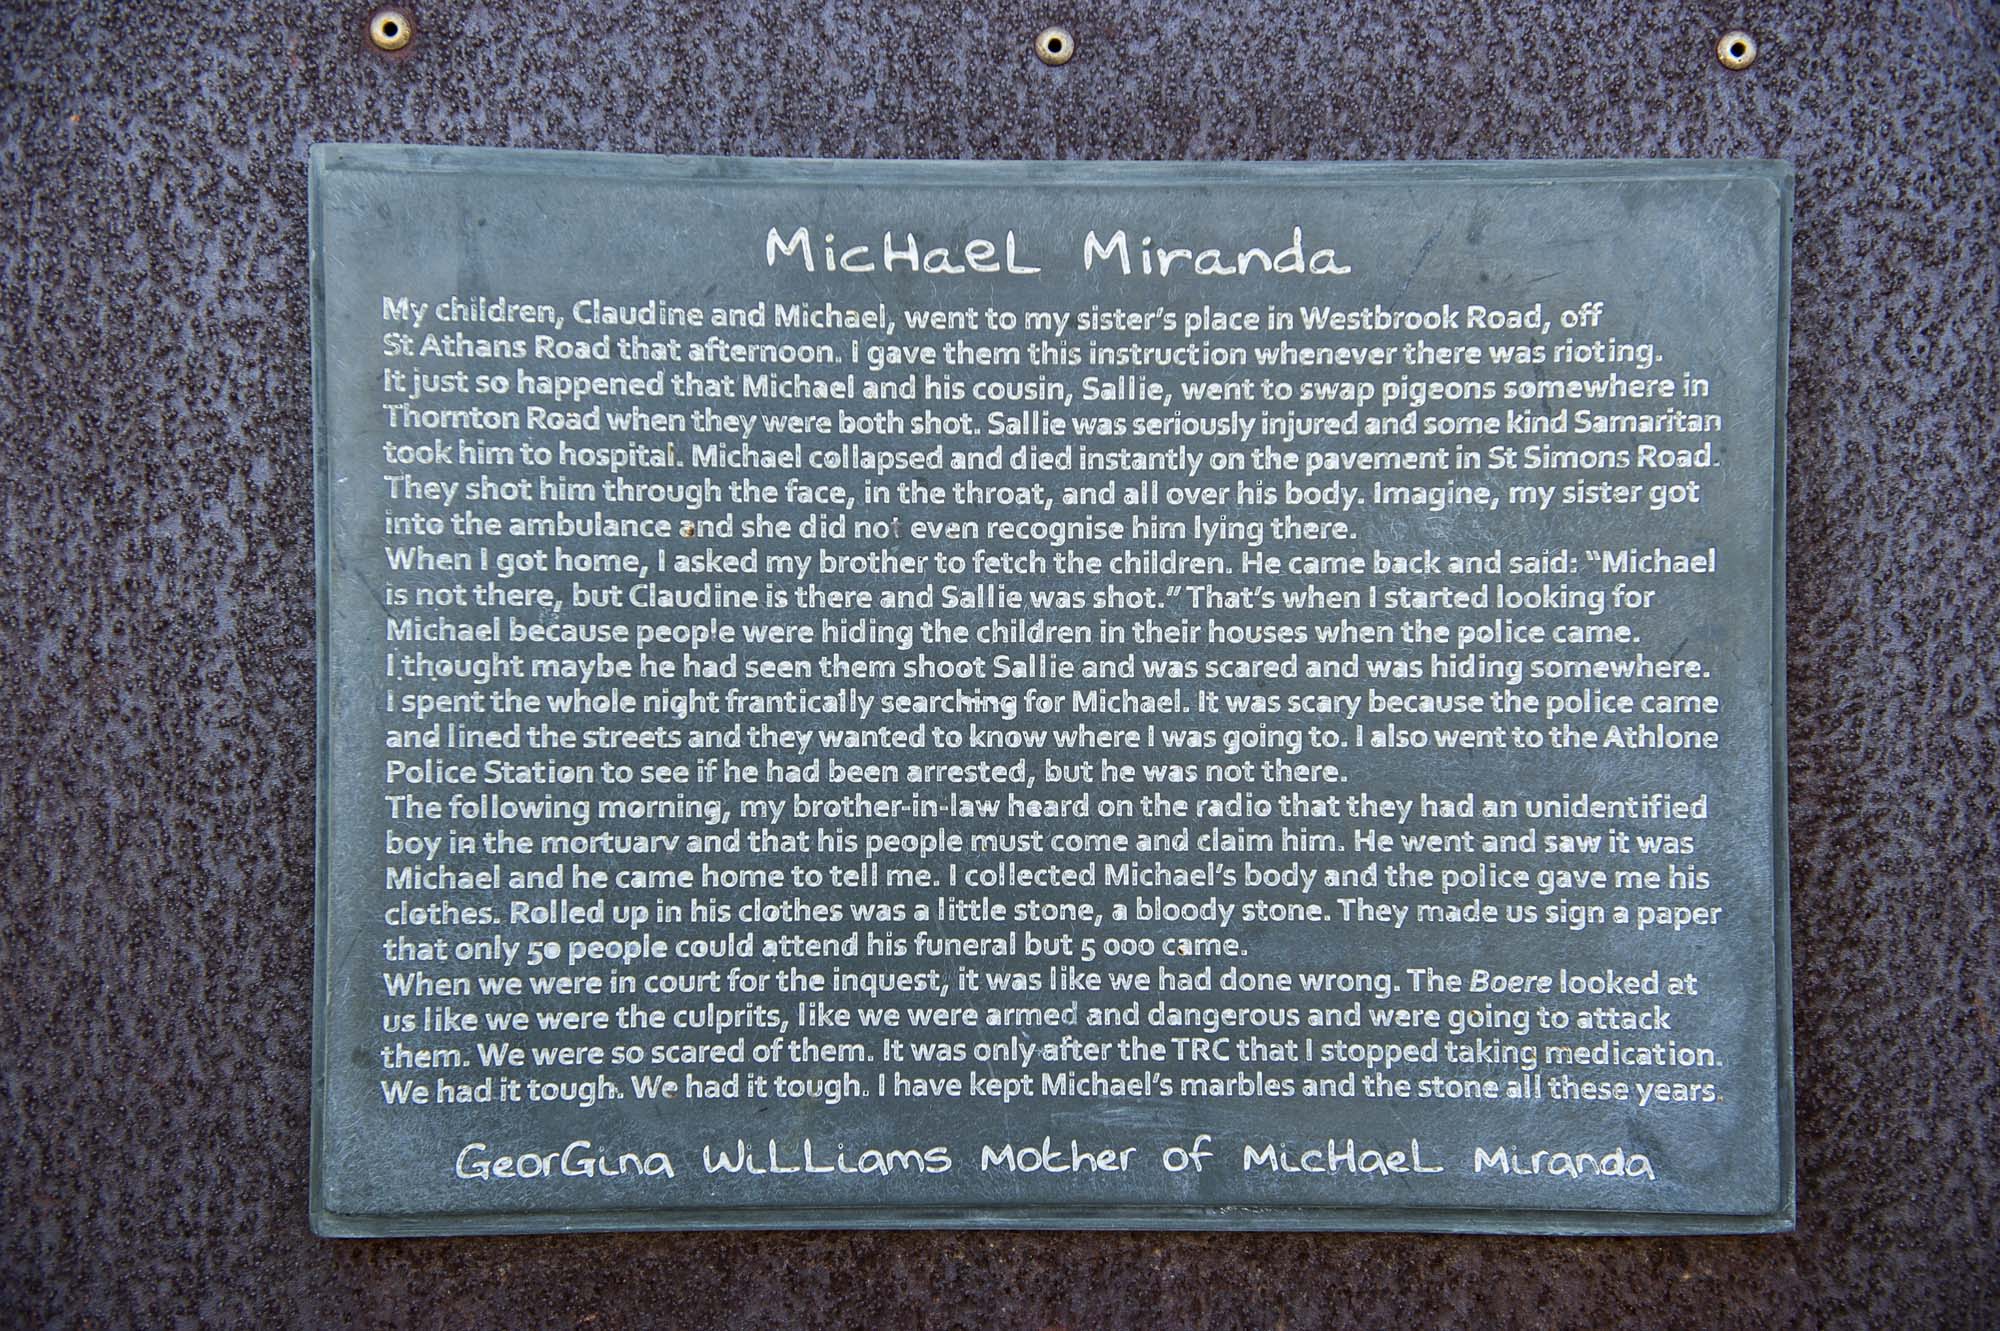 Michael Miranda
My children, Claudine and Michael, went to my sister's place in Westbrook Road, off
St Athans Road that afternoon. I gave them this instruction whenever there was rioting.
It just so happened that Michael and his cousin, Sallie, went to swap pigeons somewhere in
Thornton Road when they were both shot. Sallie was seriously injured and some kind Samaritan
took him to hospital. Michael collapsed and died instantly on the pavement in St Simons Road.
They shot him through the face, in the throat, and all over his body. Imagine, my sister got
into the ambulance and she did not even recognise him lying there.
When I got home, I asked my brother to fetch the children. He came back and said: “Michael
is not there, but Claudine is there and Sallie was shot.” That's when I started looking for
Michael because people were hiding the children in their houses when the police came.
I thought maybe he had seen them shoot Sallie and was scared and was hiding somewhere.
I spent the whole night frantically searching for Michael. It was scary because the police came
and lined the streets and they wanted to know where I was going to. I also went to the Athlone
Police Station to see if he had been arrested, but he was not there.
The following morning, my brother-in-law heard on the radio that they had an unidentified
boy in the mortuary and that his people must come and claim him. He went and saw it was
Michael and he came home to tell me. I collected Michael's body and the police gave me his
clothes. Rolled up in his clothes was a little stone, a bloody stone. They made us sign a paper
that only 50 people could attend his funeral but 5 000 came.
When we were in court for the inquest, it was like we had done wrong. The Boere looked at
us like we were the culprits, like we were armed and dangerous and were going to attack
them. We were so scared of them. It was only after the TRC that I stopped taking medication.
We had it tough. We had it tough. I have kept Michael's marbles and the stone all these years.
Georgina Williams Mother of Michael Miranda